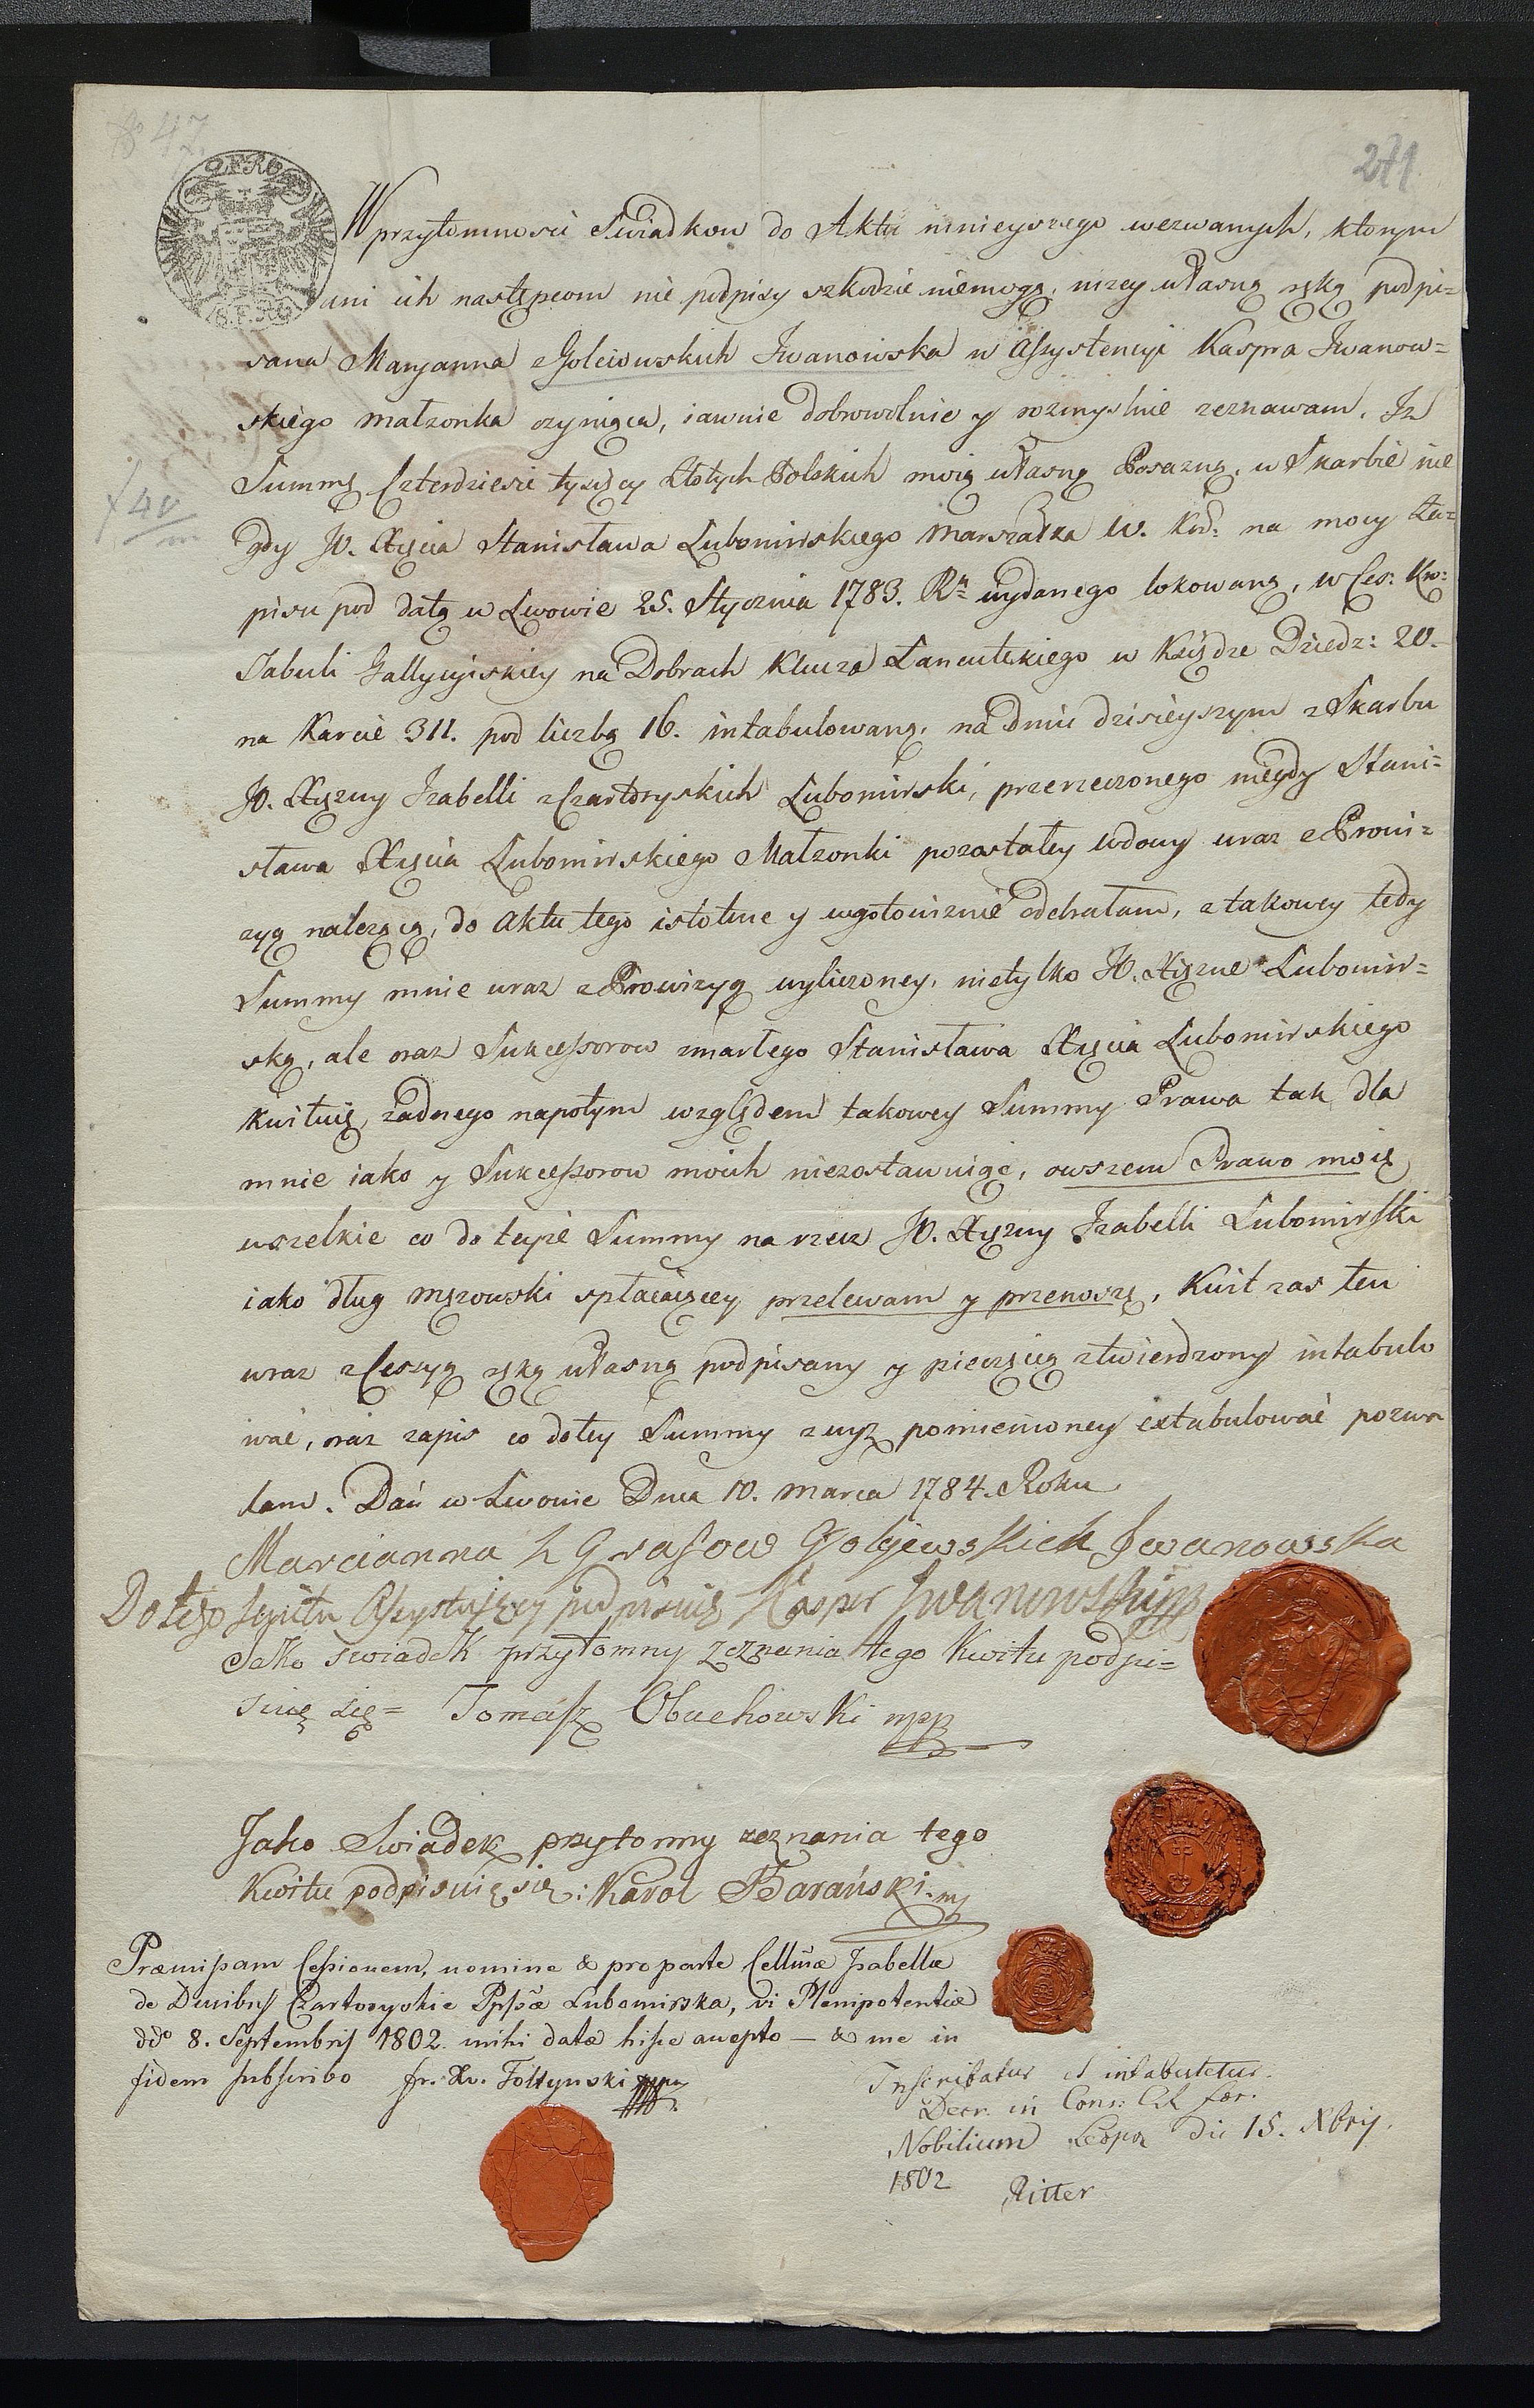 47.
271
2.F.R.
8.F.R.
W przytomnosci Swiadkow do Aktu ninieyszego wezwanych, ktorym
ani ich następcom nie podpisy szkodzic niemogą, nizey własną ręką podpi=
sana Maryanna z Goleiowskich Iwanowska w Assystencyi Kaspra Iwanow=
skiego małzonka czyniąca, iawnie dobrowolnie y rozmyslnie zeznawam, Iz
Summę Czterdziesci tysięcy Złotych Polskich moią własną Posazną, w Skarbie nie
gdy JO. Xięcia Stanisława Lubomirskiego Marszałka W. Kor: na mocy Za=
pisu pod datą w Lwowie 25. Stycznia 1783. Rk: wydanego lokowaną, w Ces: Kr:
Tabuli Gallycyiskiey na Dobrach Klucza Lancutskiego w Księdze Dziedz: 20.
na Karcie 311. pod liczbą 16. intabulowaną, na dniu dzisieyszym z Skarbu
JO. Xiężny Izabelli z Czartoryskich Lubomirski, przerzeczonego niegdy Stani=
sława Xięcia Lubomirskiego Małzonki pozostałey wdowy wraz z Prowi=
zyą nalezącą, do aktu tego istotnie y wgotowiznie odebrałam, z takowey tedy
Summy mnie wraz z Prowizyą wyliczoney, nietylko JO. Xiężne Lubomir=
ską, ale oraz Sukcessorow zmarłego Stanisława Xięcia Lubomirskiego
kwituię, zadnego napotym względem takowey Summy Prawa tak dla
mnie iako y Sukcessorow moich niezostawuiąc, owszem Prawo moie
wszelkie co do teyże Summy na rzecz JO. Xiężny Izabelli Lubomirski
iako dług mężowski spłacaiącey przelewam y przenoszę, Kwit zas ten
wraz z Cessyą ręką własną podpisany y pieczęcią ztwierdzony intabulo
wać, oraz zapis co do tey Summy zwyż pomienioney extabulować pozwa
lam. Dań w Lwowie Dnia 10. Marca 1784. Roku
Marcianna z Grafow Golejewskich Iwanowska
Do tego kwitu Assystuiący podpisuię Kasper Iwanowski mp
Jako swiadek przytomny zeznania tego kwitu podpi=
suię się= Tomasz Obuchowski mpp
Jako Swiadek przytomny zeznania tego
kwitu podpisuię się: Karol Barański mp
Præmissam Cessionem, nomine & pro parte Cellmæ Isabellæ
de Ducibus Czartoryskie Ppssæ Lubomirska, vi Plenipotentiæ
ddo 8. Septembris 1802. mihi datæ hisce accepto — & me in
fidem subscribo fr. Xv. Fołtynski mpp
Inscribatur et intabuletur.
Decr. in Cons: C.R. for.
Nobilium Leopol die 15. Xbris
1802 Ritter